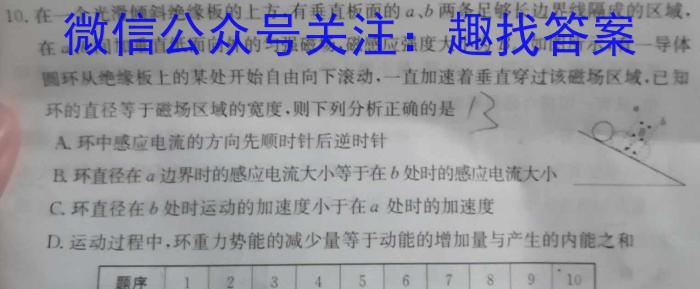 10. 在一个光滑倾斜绝缘板的上方,有垂直板面的a、b两条足够长边界线隔成的区域,
在a
微信公众号关注：趣找答案
一导体
圆环从绝缘板上的某处开始自由向下滚动,一直加速着垂直穿过该磁场区域,已知
环的直径等于磁场区域的宽度,则下列分析正确的是 B
A. 环中感应电流的方向先顺时针后逆时针
B. 环直径在a边界时的感应电流大小等于在b处时的感应电流大小
C. 环直径在b处时运动的加速度小于在a 处时的加速度
D. 运动过程中,环重力势能的减少量等于动能的增加量与产生的内能之和
a
b
题序 1 2 3 4 5 6 7 8 9 10